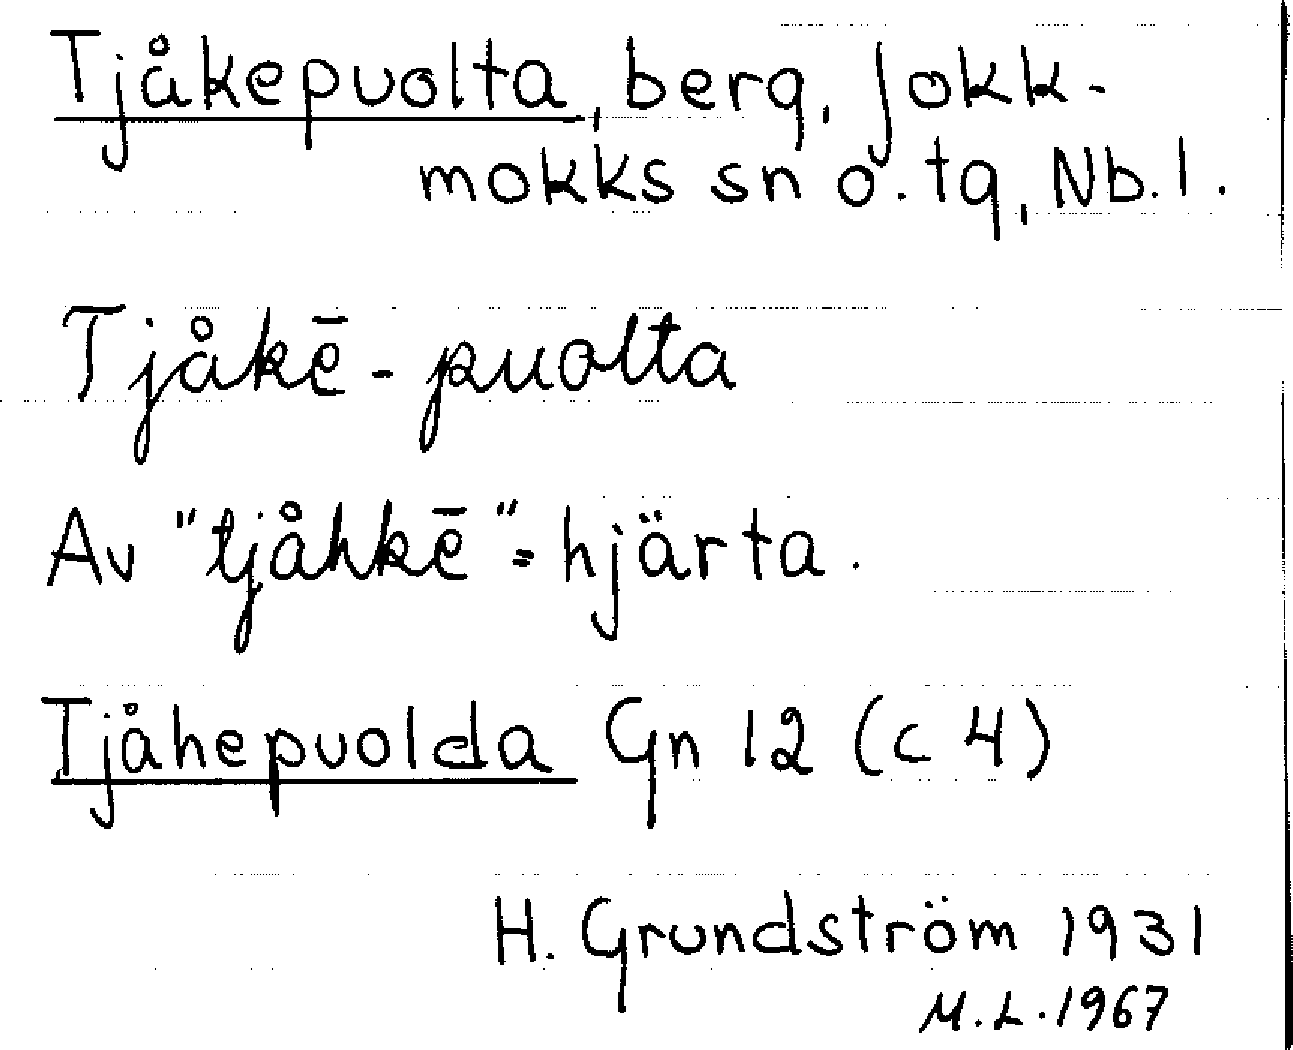 Tjåkepuolta, berg, Jokk-
mokks sn o. tg, Nb. l.
Tjåkē-puolta
Av "tjåhkē" = hjärta.
Tjåhepuolda Gn 12 (c 4)
H. Grundström 1931
M.L. 1967